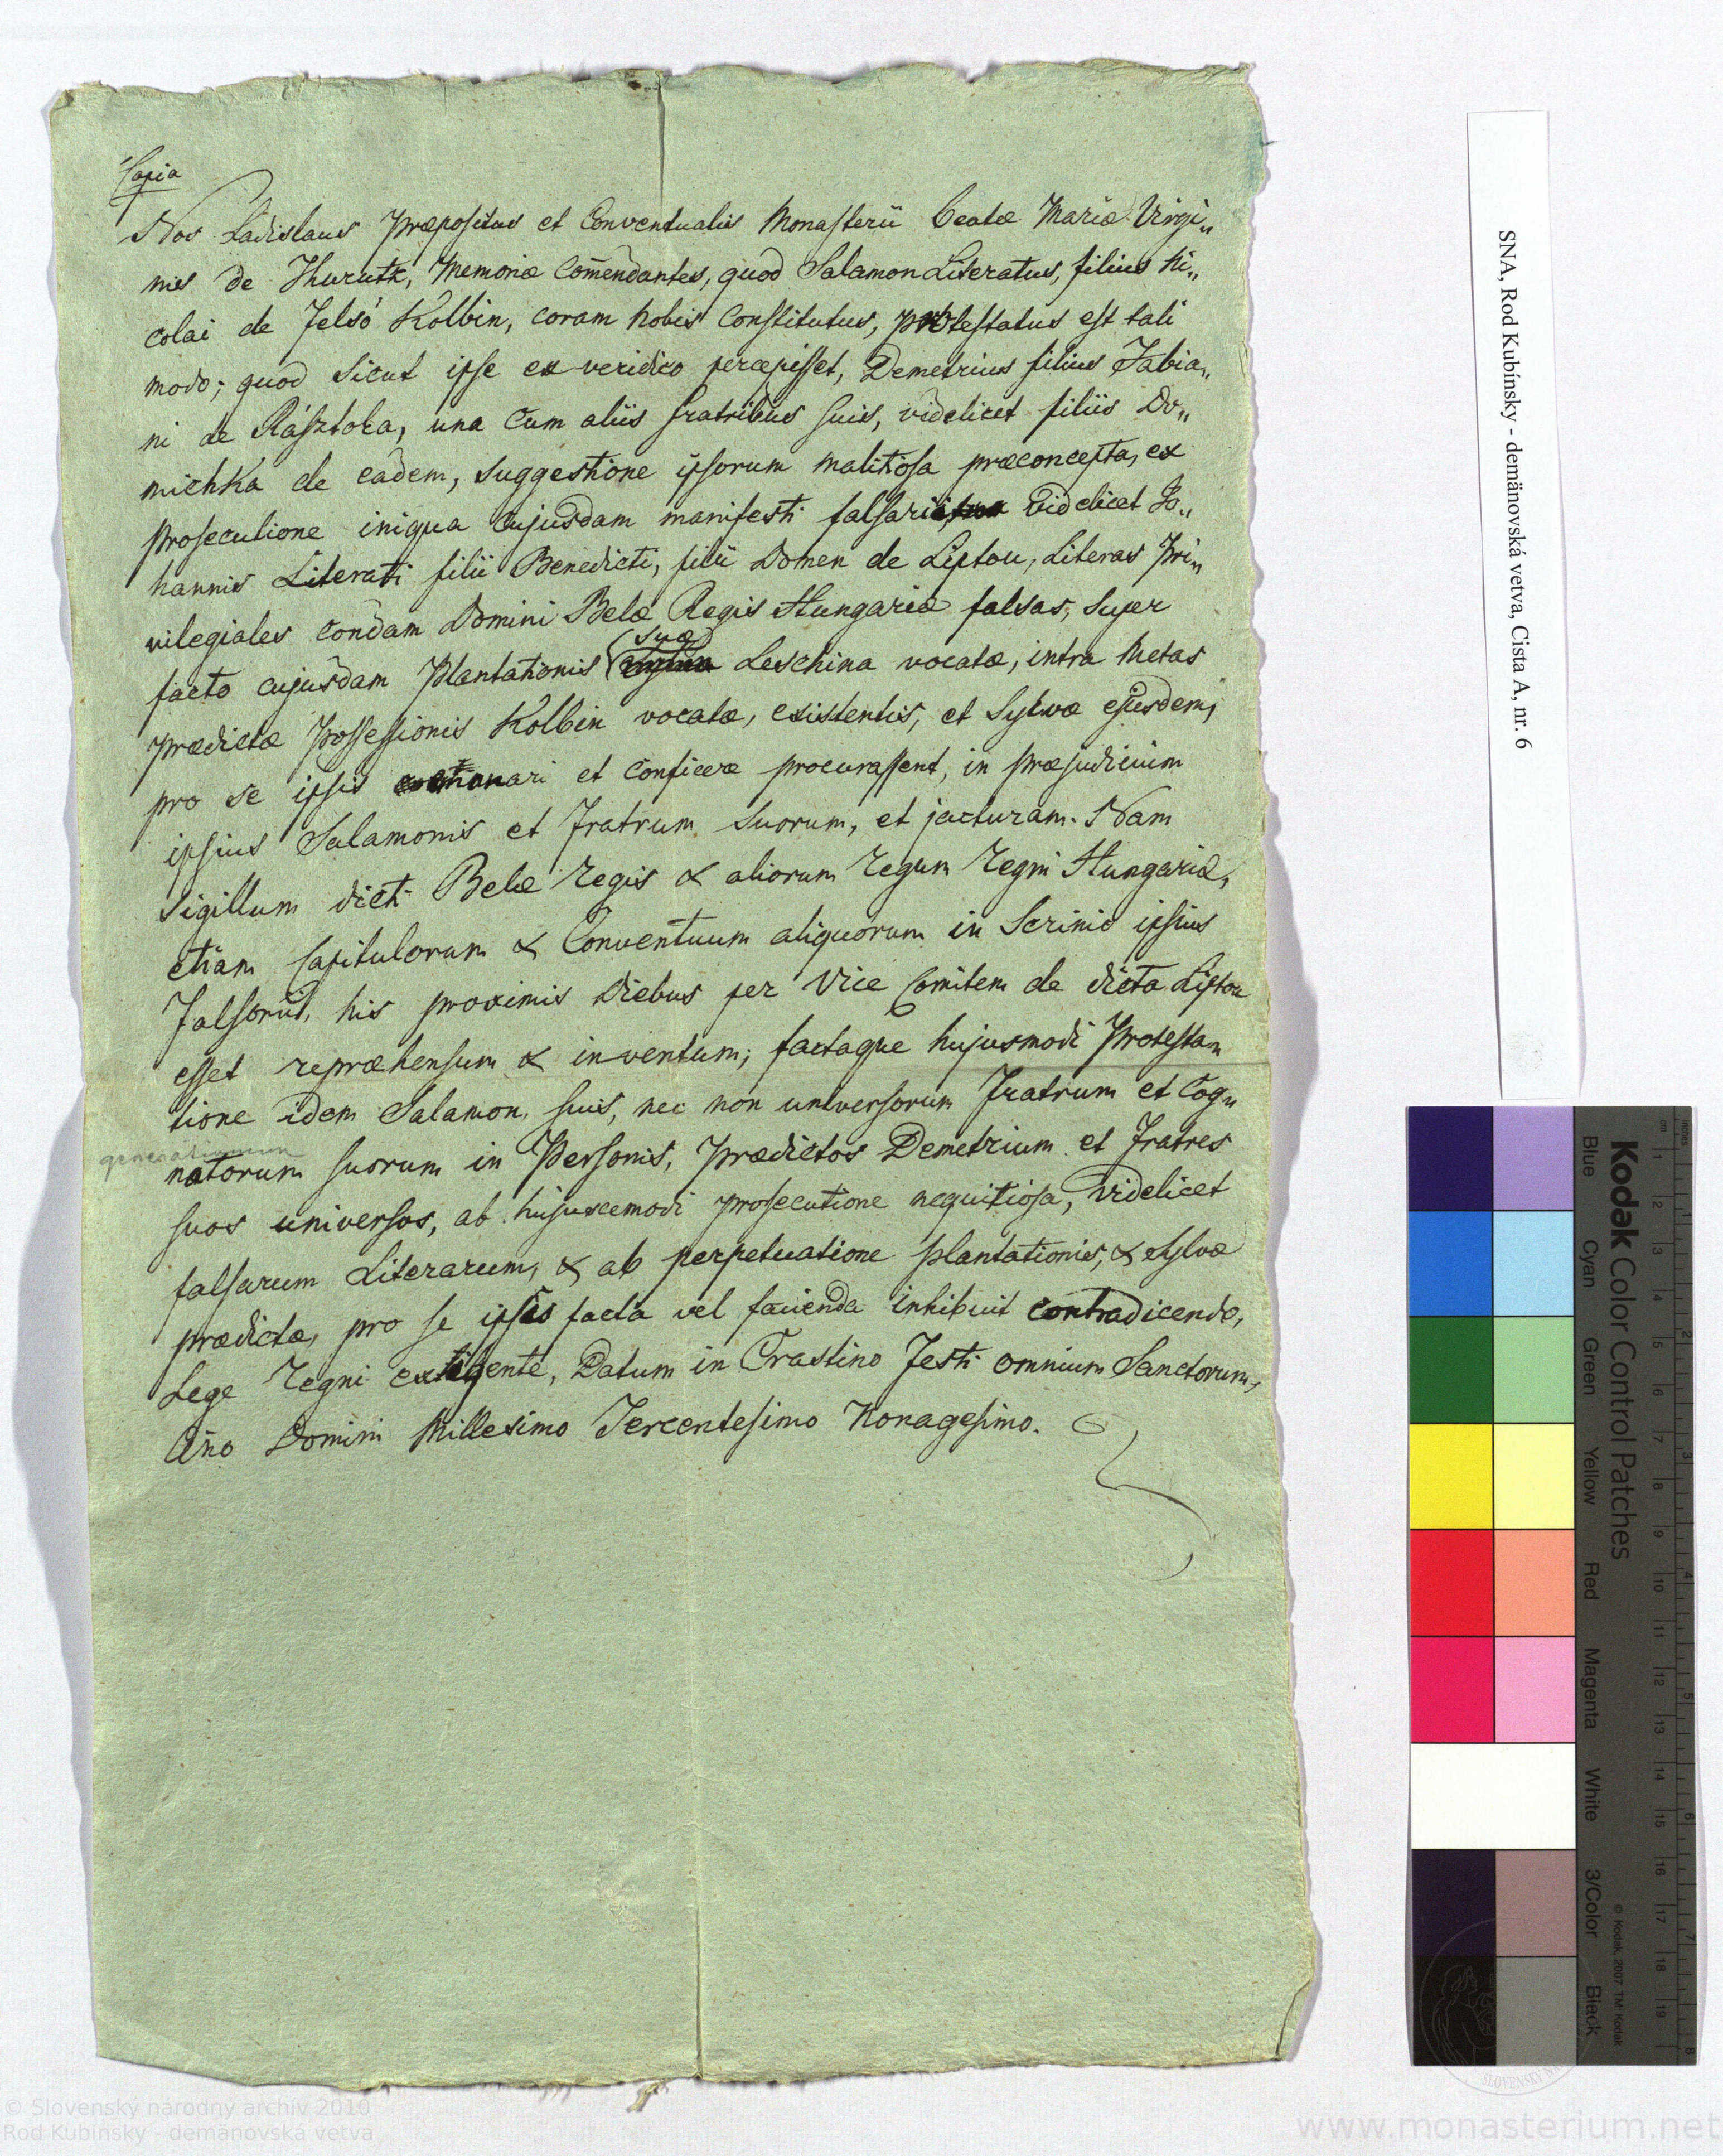 Copia
Nos Ladislaus Præpositus et Conventualis Monasterii Beatæ Mariæ Virgi„
nis de Thurutz, Memoriæ Comendantes, quod Salamon Literatus, filius Ni„
colai de Felsö Kolbin, coram Nobis Constitutus, protestatus est tali
modo; quod sicut ipse ex veridico percepisset, Demetrius filius Fabia„
ni de Rásztoka, una cum aliis fratribus suis, videlicet filiis Do„
michka de eadem, suggestione ipsorum malitiosa præconcepta, ex
prosecutione iniqua cujusdam manifesti falsarii videlicet Jo„
hannis Literati filii Benedicti, filii Domen de Liptou, Literas Pri„
vilegiales condam Domini Belæ Regis Hungariæ falsas, super
facto cujusdam Plantationis (suæ) Leschina vocatæ, intra Metas
prædictæ Possessionis Kolbin vocatæ, existentis, et Sylvæ ejusdem,
pro se ipsis emanari et conficere procurassent, in præjudicium
ipsius Salamonis et Fratrum suorum, et jacturam. Nam
Sigillum dicti Belæ Regis & aliorum Regum Regni Hungariæ,
etiam Capitulorum & Conventuum aliquorum in Scrinio ipsius
Falsorii, his proximis Diebus per Vice Comitem de dicta Liptou
esset repræhensum & inventum; factaque hujusmodi Protesta„
tione idem Salamon, suis, nec non universorum Fratrum et Cog„
generationum
natorum suorum in Personis, Prædictos Demetrium et Fratres
suos universos, ab hujuscemodi prosecutione nequitiosa, videlicet
falsarum Literarum, & ab perpetuatione plantationis, & Sylvæ
prædictæ, pro se ipsis facta vel facienda inhibuit contradicendo,
Lege Regni exigente, Datum in Crastino Festi omnium Sanctorum,
Año Domini Millesimo Tercentesimo Nonagesimo.
SNA, Rod Kubínsky - demänovská vetva, Cista A, nr. 6
Kodak Color Control Patches
Blue Cyan Green Yellow Red Magenta White 3/Color Black
© Kodak, 2007 TM: Kodak
© Slovenský národný archív 2010
Rod Kubínsky - demänovská vetva
www.monasterium.net